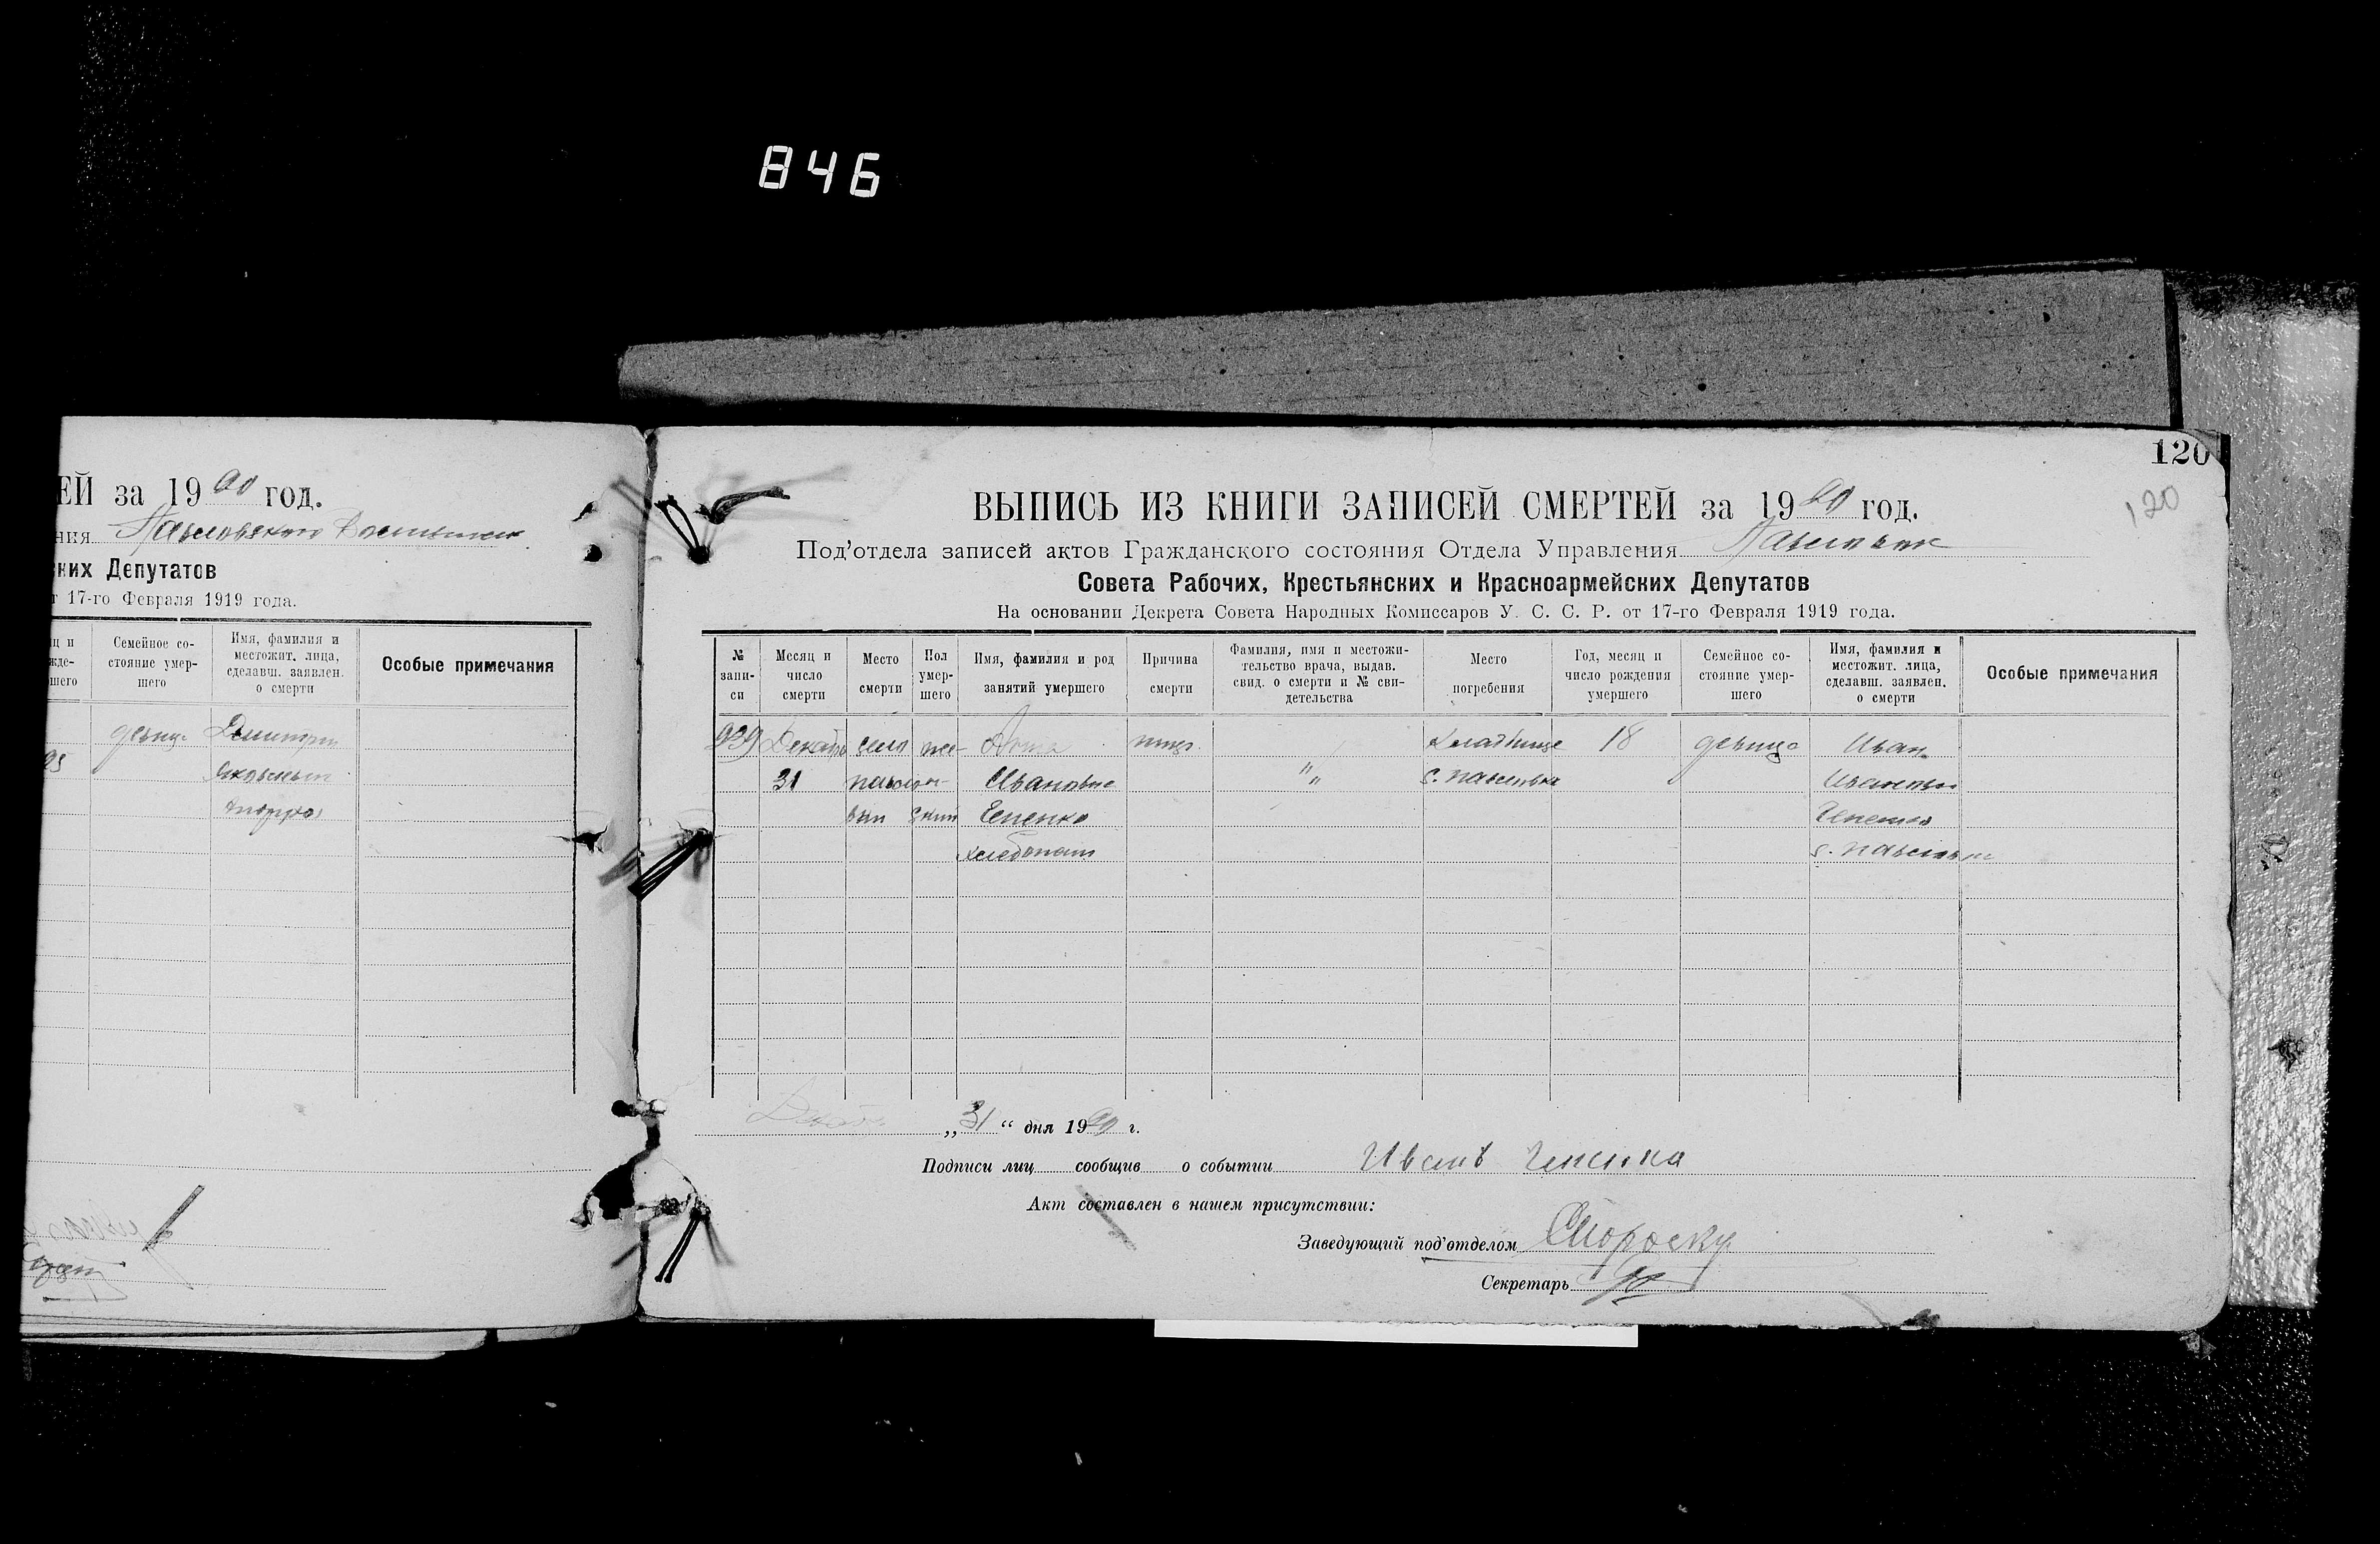 846
ЕЙ за 1920 год.
ния
ких Депутатов
т 17-го Февраля 1919 года.
ц и
жде-
шего
Семейное со-
стояние умер-
шего
Имя, фамилия и
местожит. лица,
сделавш. заявлен.
о смерти
Особые примечания
девица
Дмитрий
95
120
120
ВЫПИСЬ ИЗ КНИГИ ЗАПИСЕЙ СМЕРТЕЙ за 1920 год.
Под'отдела записей актов Гражданского состояния Отдела Управления
Совета Рабочих, Крестьянских и Красноармейских Депутатов
На основании Декрета Совета Народных Комиссаров У. С. С. Р. от 17-го Февраля 1919 года.
№
запи-
си
Месяц и
число
смерти
Место
смерти
Пол
умер-
шего
Имя, фамилия и род
занятий умершего
Причина
смерти
Фамилия, имя и местожи-
тельство врача, выдав.
свид. о смерти и № сви-
детельства
Место
погребения
Год, месяц и
число рождения
умершего
Семейное со-
стояние умер-
шего
Имя, фамилия и
местожит. лица,
сделавш. заявлен.
о смерти
Особые примечания
939 Декабрь село же- Кладбище 18 девица Иван
31 Ивановна " "
ский
хлебопаш
„31“ дня 1920 г.
Подписи лиц сообщив о событии Иванъ
Акт составлен в нашем присутствии:
Заведующий под'отделом
Секретарь